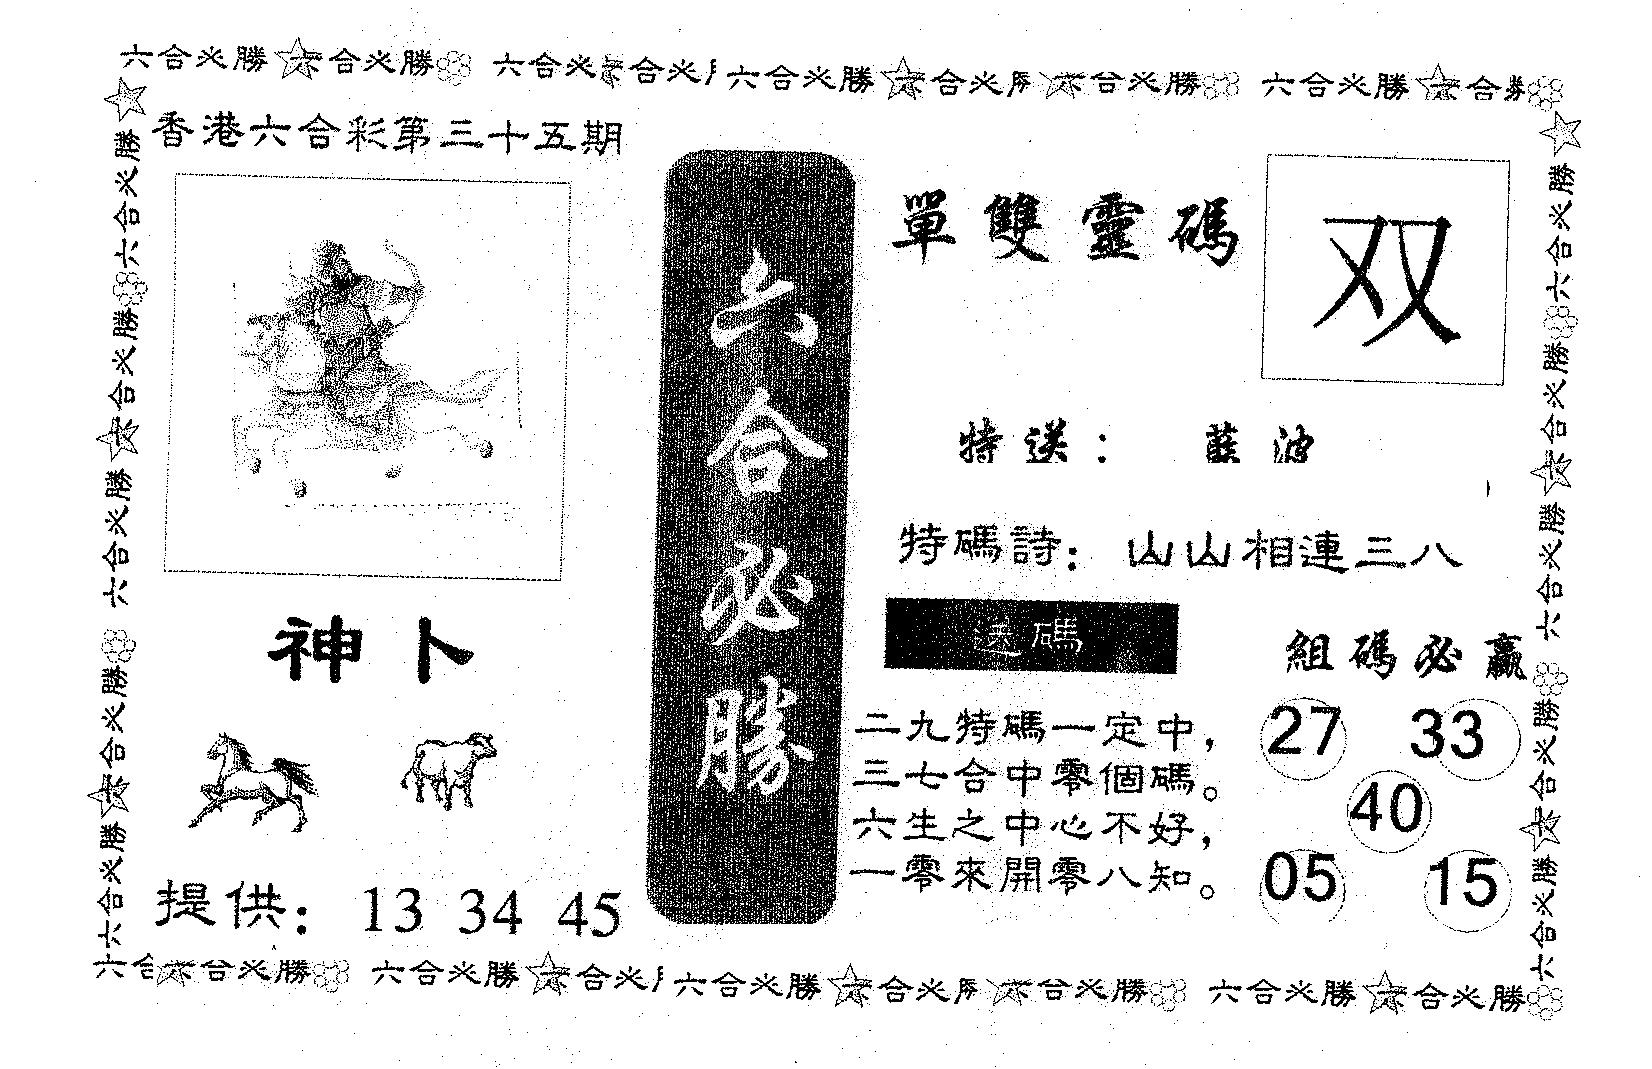 六合必勝 六合必勝 六合必 六合必 六合必勝 六合必 六合必勝 六合必勝 六合
香港六合彩第三十五期
神卜
提供：13 34 45
六合必勝
單雙靈碼
双
特送： 藍波
特碼詩：山山相連三八
送碼
二九特碼一定中，
三七合中零個碼。
六生之中心不好，
一零來開零八知。
組碼必贏
27 33
40
05 15
六合 六合必勝 六合必勝 六合必 六合必勝 六合必 六合必勝 六合必勝 六合必勝
六合必勝 六合必勝 六合必勝 六合必勝 六合必勝
六合必勝 六合必勝 六合必勝 六合必勝 六合必勝